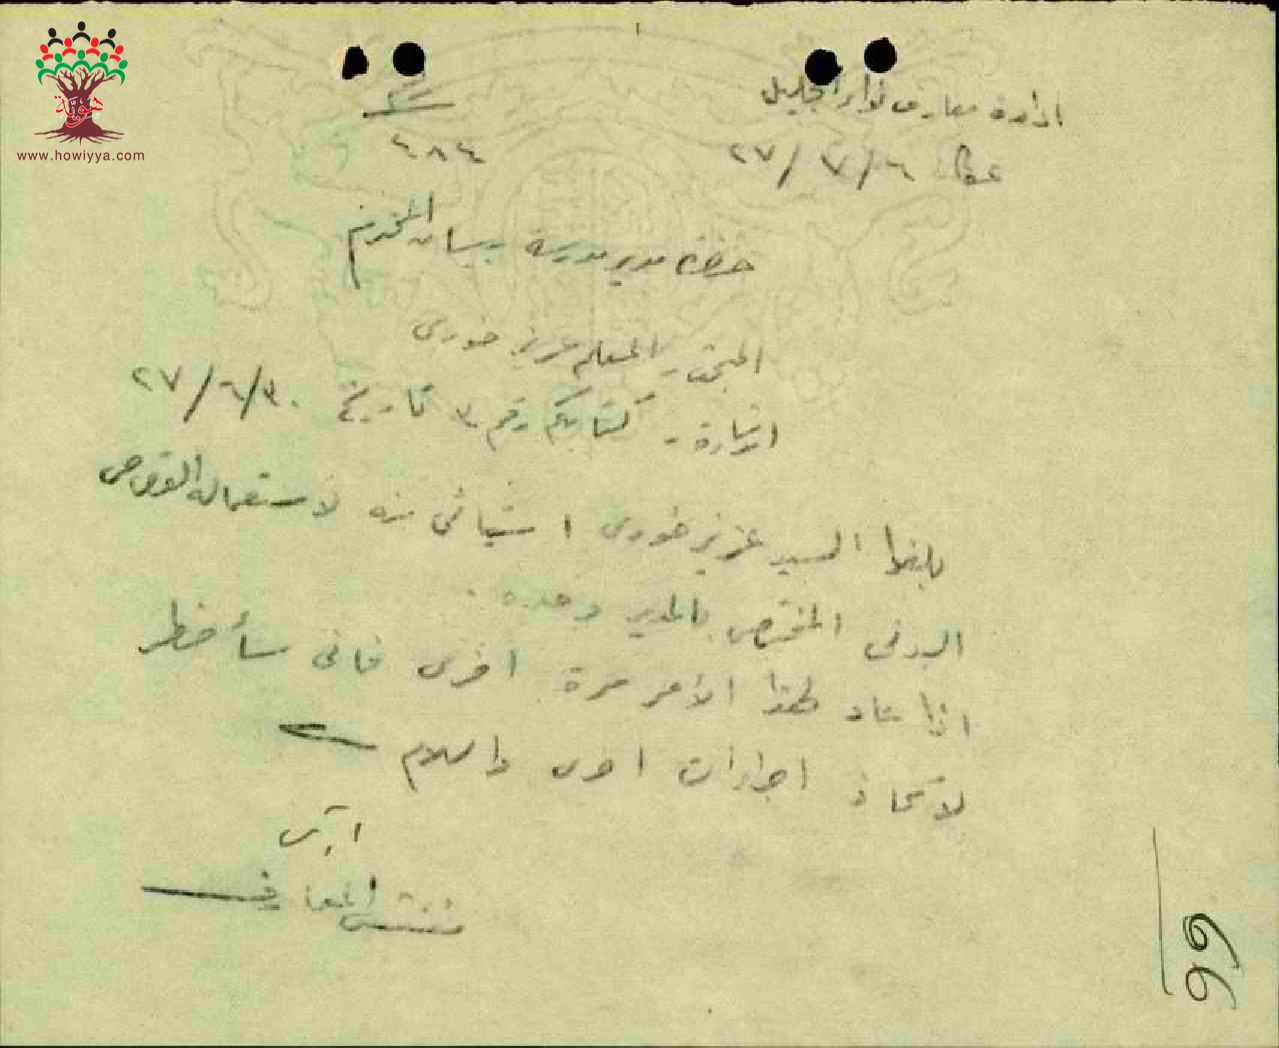 هوية
www.howiyya.com
ادارة معارف لواء الجليل
عكا ٢٧/٧/٦
٤٨٤
حضرة مدير مدرسة بيسان المحترم
المبحث - المعلم عزيز خوري
اشارة - كتابكم رقم ٣ تاريخ ٢٧/٦/٣٠
بلغوا السيد عزيز خوري استيائي منه لاستعماله القصاص
البدني المختص بالمدير وحده .
اذا عاد لهذا الامر مرة اخرى فاني سأضطر
لاتخاذ اجراءات اخرى والسلام
مفتش المعارف
99